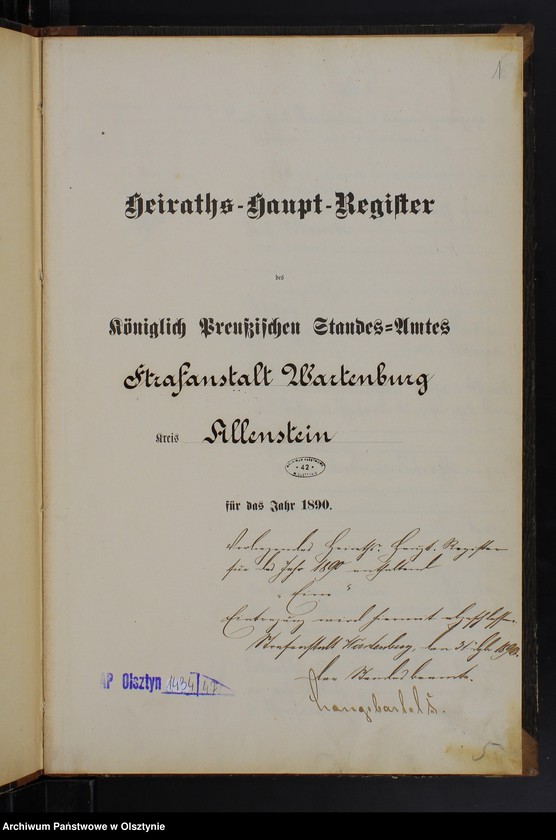 1
Heiraths-Haupt-Register
des
Königlich Preußischen Standes-Amtes
Strafanstalt Wartenburg
Kreis Allenstein
42
für das Jahr 1890.
Vorliegendes Heiraths-Haupt-Register
für das Jahr 1890 enthaltend
"Eine"
Eintragung wird hiermit abgeschlossen.
Strafanstalt Wartenburg, den 31 1890.
Der Standesbeamte.
AP Olsztyn 1434/47
5
Archiwum Państwowe w Olsztynie